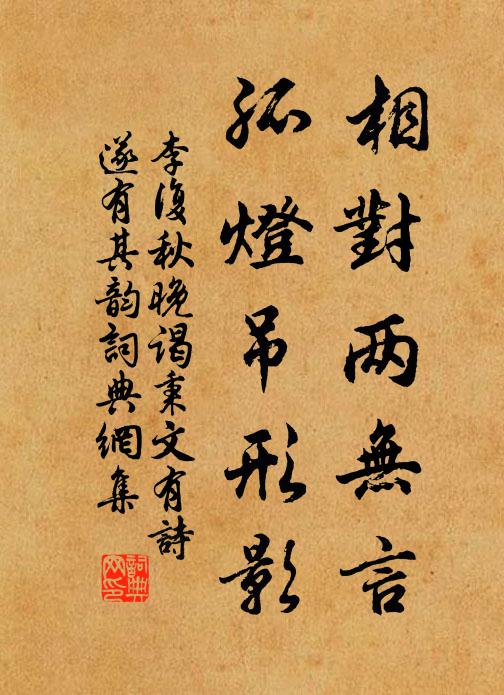 相對两無言
孤燈吊形影
李復秋晚謁秉文有詩
遂有其韵詞典網集
詞典网印